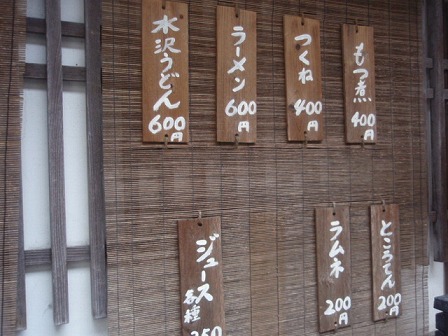 水沢うどん
600円
ラーメン
600円
つくね
400円
もつ煮
400円
ジュース
各種
250
ラムネ
200円
ところてん
200円